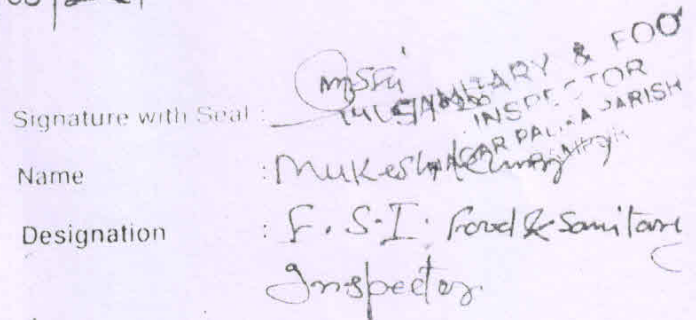 Signature with Seal :
SANITARY & FOO
INSPECTOR
NAGAR PALIKA PARISH
Name : Mukesh
Designation : F. S. I. Food & Sanitary
Inspector